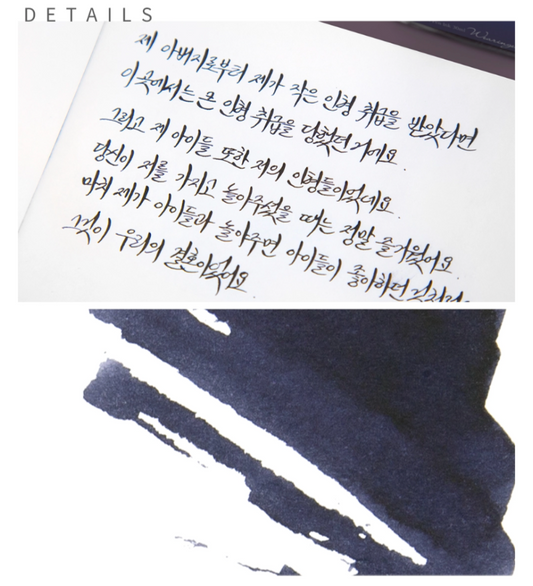 DETAILS
제 아버지로부터 제가 작은 인형 취급을 받았다면
이 곳에서는 큰 인형 취급을 당했던 거예요.
그리고 제 아이들 또한 저의 인형들이었네요.
당신이 저를 가지고 놀아주셨을 때는 정말 즐거웠어요.
마치 제가 아이들과 놀아주면 아이들이 좋아하던 것처럼
그것이 우리의 결혼이었어요